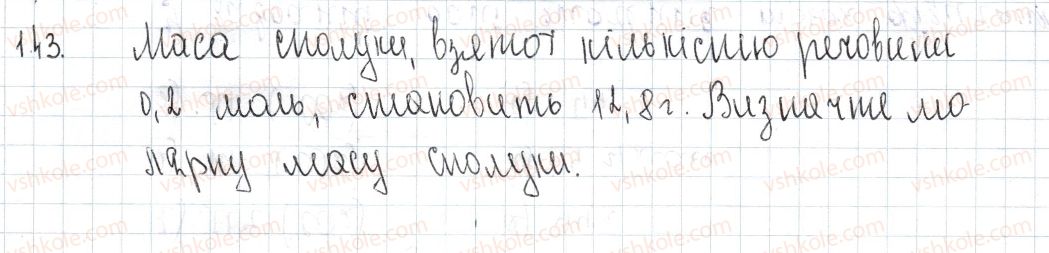 143. Маса сполуки, взятої кількістю речовини
0,2 моль, становить 12,8 г. Визначте мо-
лярну масу сполуки.